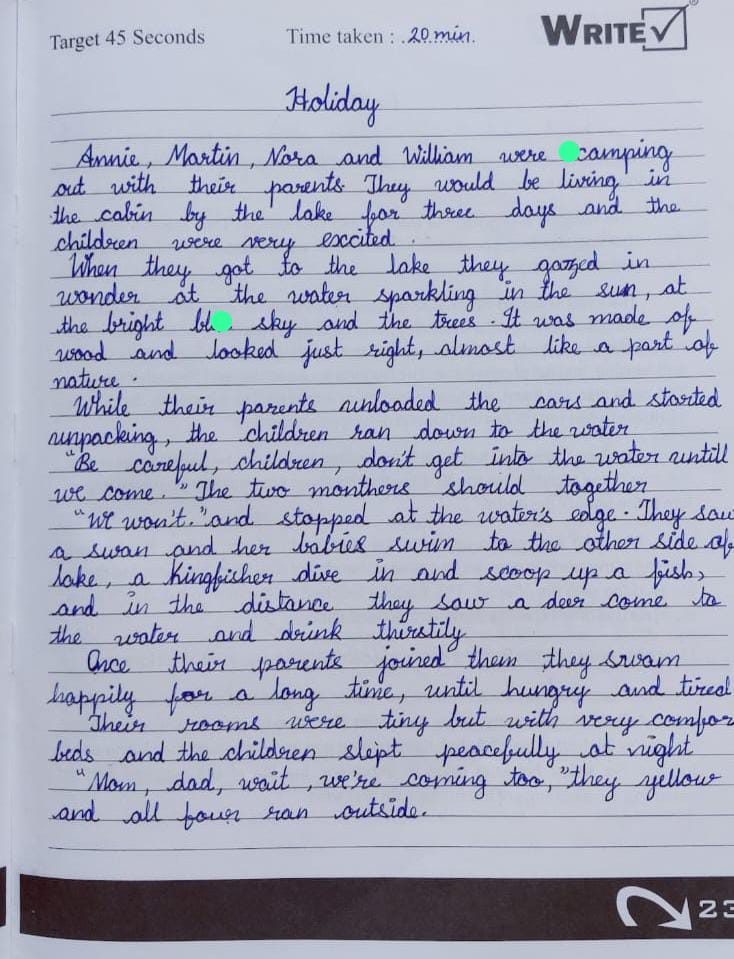 Target 45 Seconds Time taken : 20 min. WRITE
Holiday
Annie, Martin, Nora and William were camping
out with their parents. They would be living in
the cabin by the lake for three days and the
children were very excited.
When they got to the lake they gazed in
wonder at the water sparkling in the sun, at
the bright sky and the trees. It was made of
wood and looked just right, almost like a part of
nature.
While their parents unloaded the cars and started
unpacking, the children ran down to the water
"Be careful, children, don't get into the water untill
we come." The two monthers should together
"We won't." and stopped at the water's edge. They saw
a swan and her babies swim to the other side of
lake, a Kingfisher dive in and scoop up a fish,
and in the distance they saw a deer come to
the water and drink thirstily
Once their parents joined them they swam
happily for a long time, until hungry and tired
Their rooms were tiny but with very comfor
beds and the children slept peacefully at night
"Mom, dad, wait, we're coming too," they yellow
and all four ran outside.
23